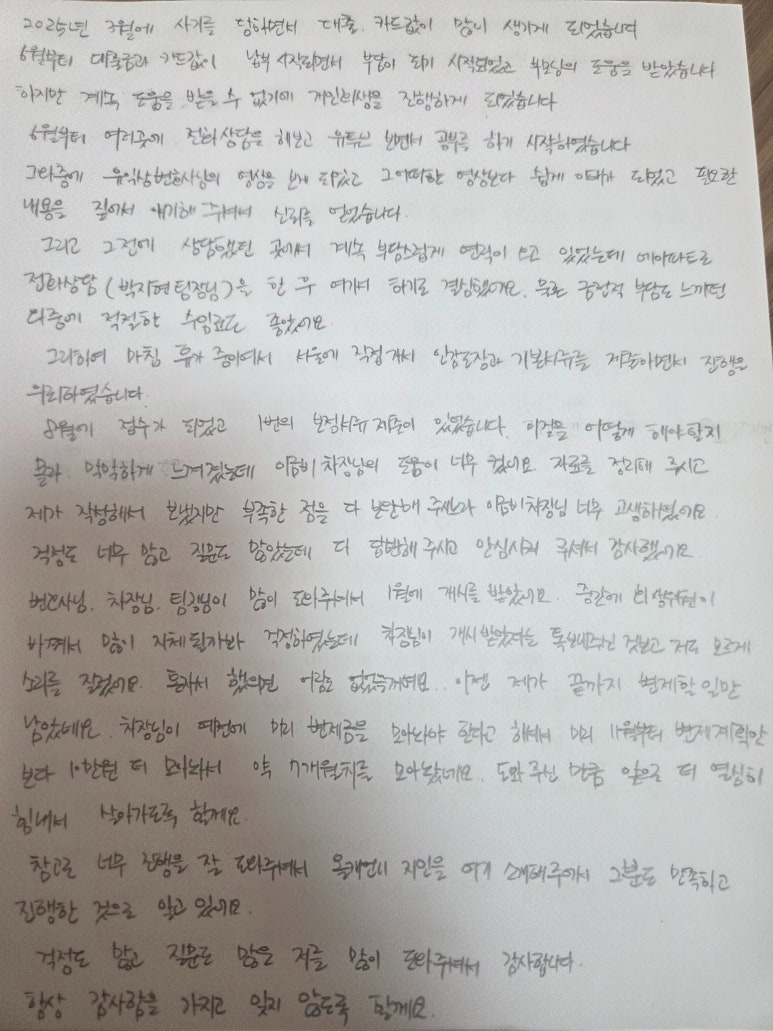 2025년 3월에 사기를 당하면서 대출, 카드값이 많이 생기게 되었습니다
6월부터 대출금과 카드값이 납부 시작되면서 부담이 되기 시작되었고 부모님의 도움을 받았습니다
하지만 계속 도움을 받을 수 없기에 개인회생을 진행하게 되었습니다
6월부터 여러곳에 전화상담을 해보고 유튜브 보면서 공부를 하기 시작하였습니다
그러중에 유익상변호사님의 영상을 보게 되었고 그 어떠한 영상보다 쉽게 이해가 되었고 필요한
내용을 짚어서 얘기해 주셔서 신뢰를 얻었습니다.
그리고 그전에 상담했던 곳에서 계속 부담스럽게 연락이 오고 있었는데 에이파트로
전화상담 (박지현팀장님)을 한 후 여기서 하기로 결심했어요. 물론 금전적 부담도 느끼던
더중에 적절한 수임료도 좋았어요
그리하여 마침 휴가 중이여서 서울에 직접 가서 인감도장과 기본서류를 제출하면서 진행을
의뢰하였습니다.
8월에 접수가 되었고 1번의 보정서류 제출이 있었습니다. 이것을 어떻게 해야할지
몰라 막막하게 느껴졌는데 이금비 차장님의 도움이 너무 컸네요. 자료를 정리해 주시고
제가 작성해서 보냈지만 부족한 점을 다 보단해 주시느라 이금비차장님 너무 고생하셨어요
걱정도 너무 많고 질문도 많았는데 더 답변해 주시고 안심시켜 주셔서 감사했어요
변호사님, 차장님, 팀장님이 많이 도와주셔서 1월에 개시를 받았네요. 중간에 회생위원이
바껴서 많이 지체될까봐 걱정하였는데 차장님이 개시받았다는 톡보내주신 것보고 저도 모르게
소리를 질렀어요. 혼자서 했으면 어림도 없었을꺼예요. 이젠 제가 끝까지 변제할 일만
남았네요. 차장님이 예전에 미리 변제금을 모아놔야 한다고 하셔서 미리 11월부터 변제계획안
보다 10만원 더 모아놔서 약 7개월치를 모아놨네요. 도와주신 만큼 앞으로 더 열심히
힘내서 살아가도록 할게요.
참고로 너무 진행을 잘 도와주셔서 올케언니 지인을 여기 소개해주어서 그분도 만족하고
진행한 것으로 알고 있어요.
걱정도 많고 질문도 많은 저를 많이 도와주셔서 감사합니다.
항상 감사함을 가지고 잊지 않도록 할게요.